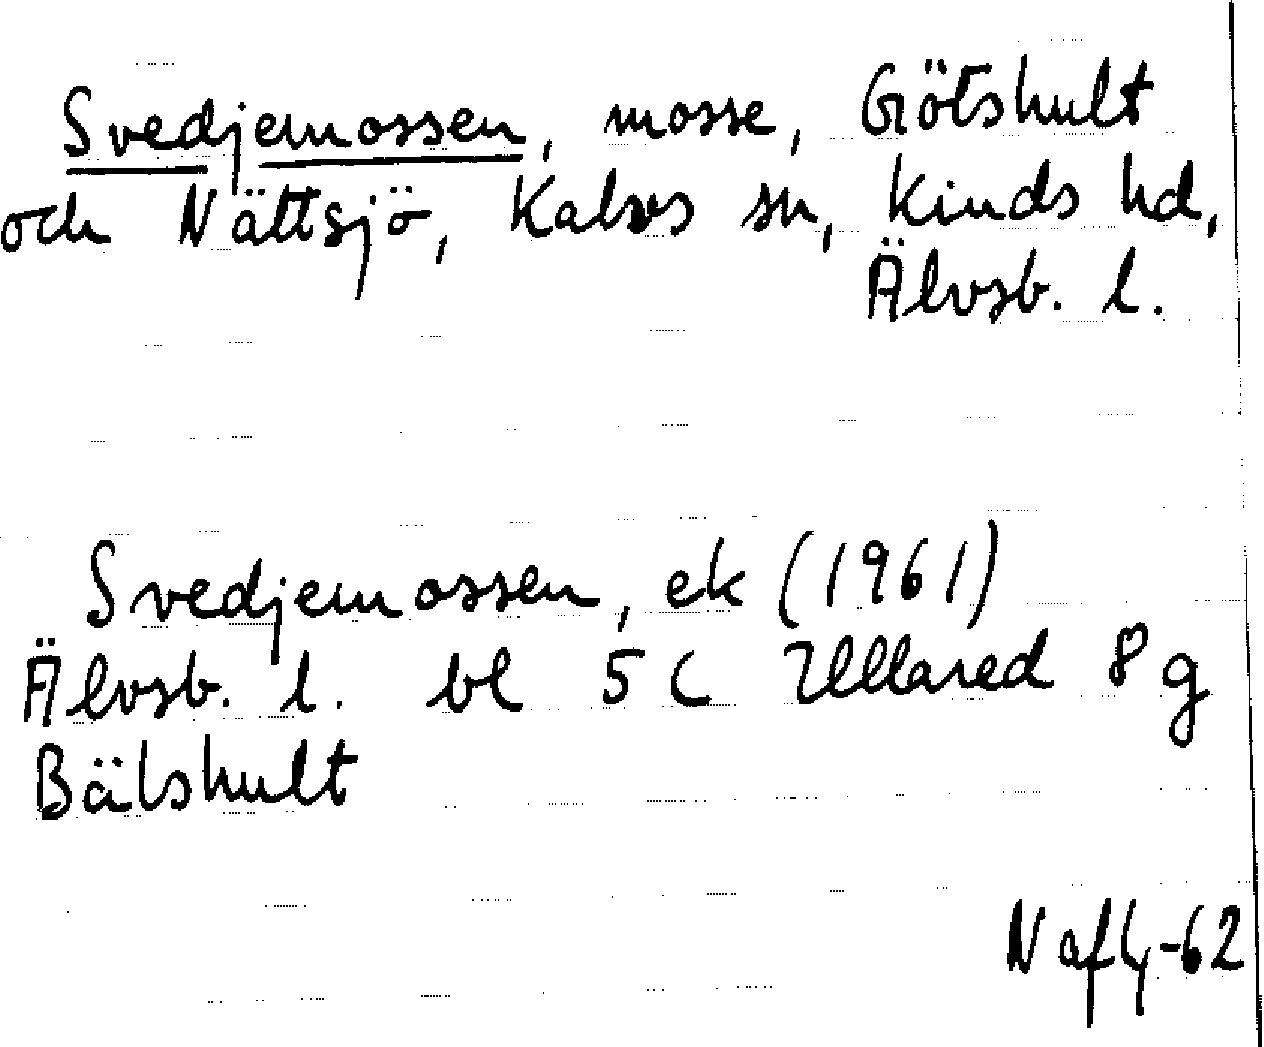 Svedjemossen, mosse, Götshult
och Nättsjö, Kalvs sn, Kinds hd,
Älvsb. l.
Svedjemossen, ek (1961)
Älvsb. l. bl 5 C Ullared 8 g
Bälshult
N afly-62